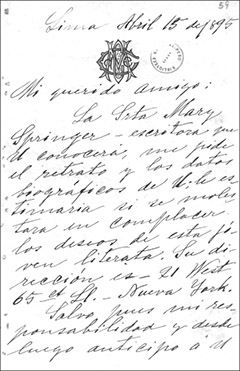 59
Lima Abril 15 de 1895
Mi querido amigo:
La Srta Mary
Springer - escritora que
U conocerá, me pide
el retrato y los datos
biográficos de U: le es
timaria si se moles
tara en complacer
los deseos de esta jó
ven literata. Su di
rección es - 21 West
65 ct St. - Nueva York.
Salvo pues mi res
ponsabilidad y desde
luego anticipo á U